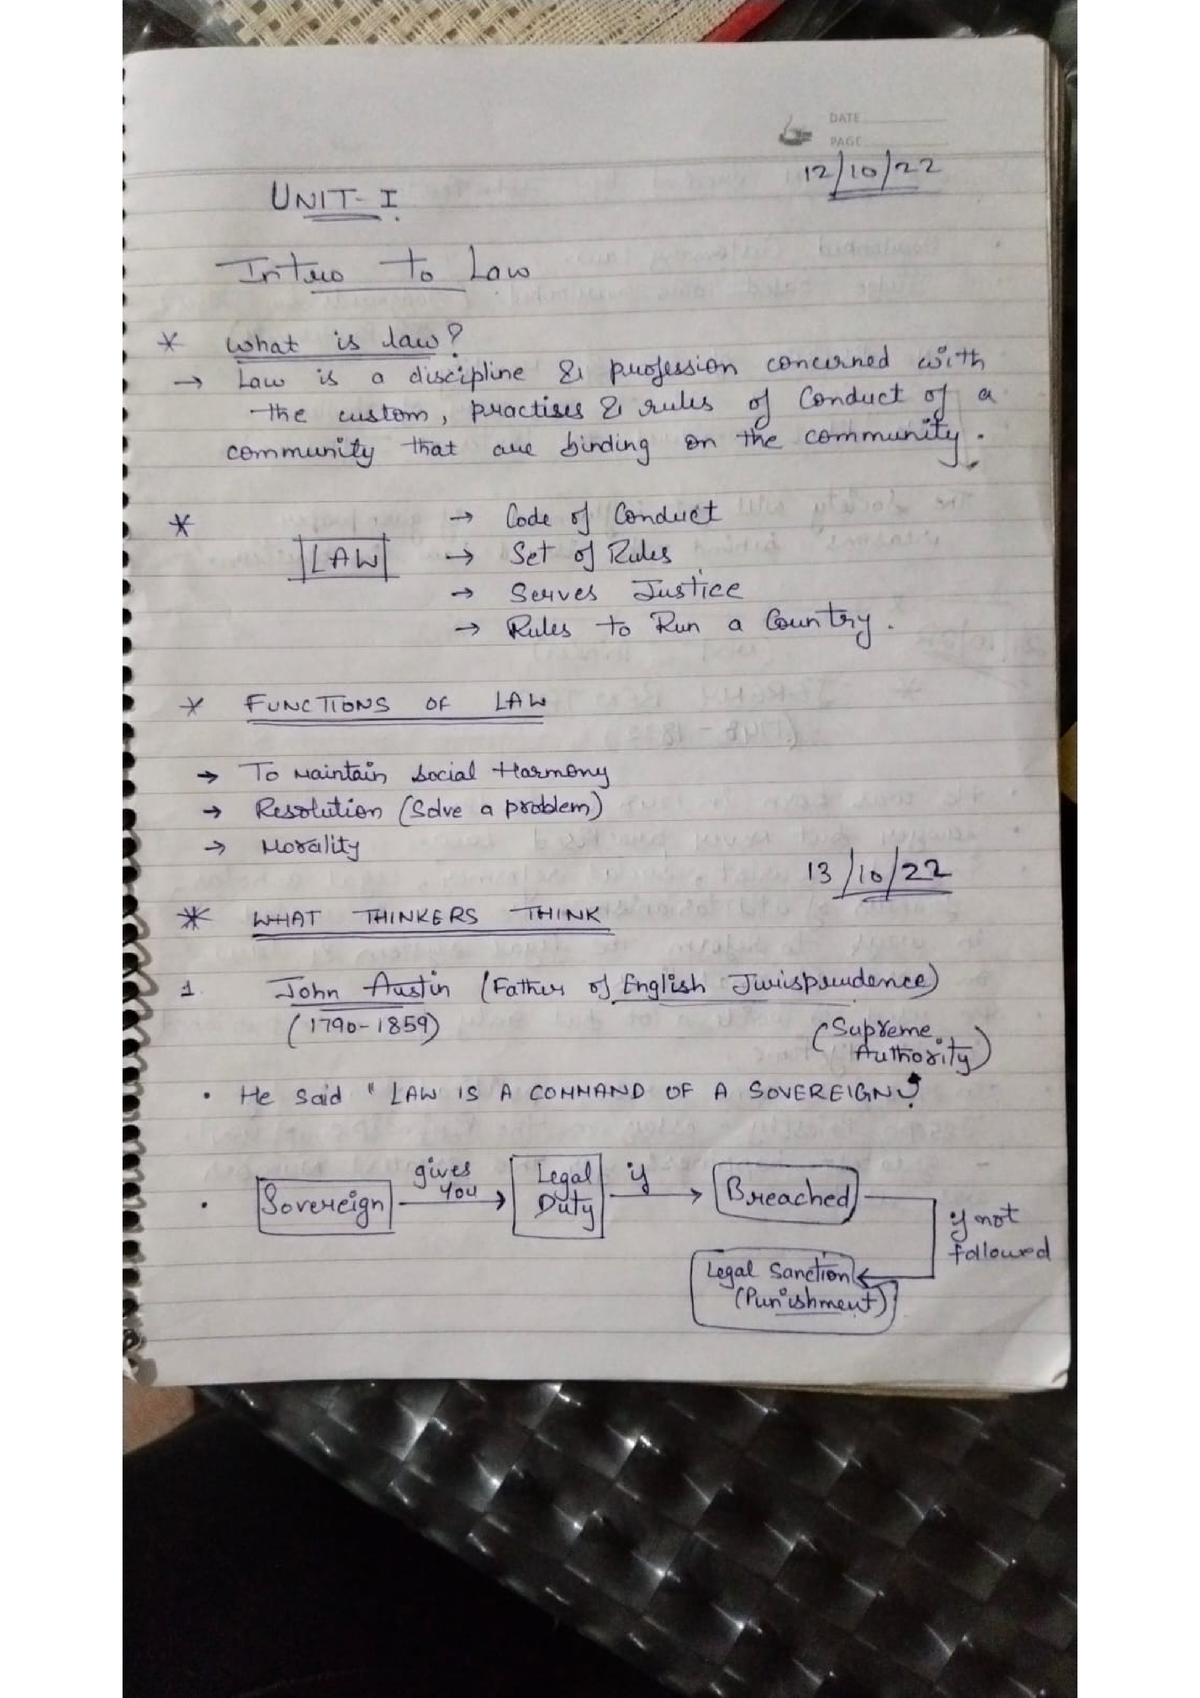 DATE
PAGE
12/10/22
UNIT-I
Intro to Law
* What is law?
→ Law is a discipline & profession concerned with
the custom, practises & rules of Conduct of a
community that are binding on the community.
* LAW → Code of Conduct
→ Set of Rules
→ Serves Justice
→ Rules to Run a Country.
* FUNCTIONS OF LAW
→ To Maintain Social Harmony
→ Resolution (Solve a problem)
→ Morality
13/10/22
* WHAT THINKERS THINK
1. John Austin (Father of English Jurisprudence)
(1790-1859)
(Supreme
Authority)
• He said "LAW IS A COMMAND OF A SOVEREIGN"
• Sovereign gives you → Legal Duty if → Breached
if not
followed
Legal Sanction
(Punishment)